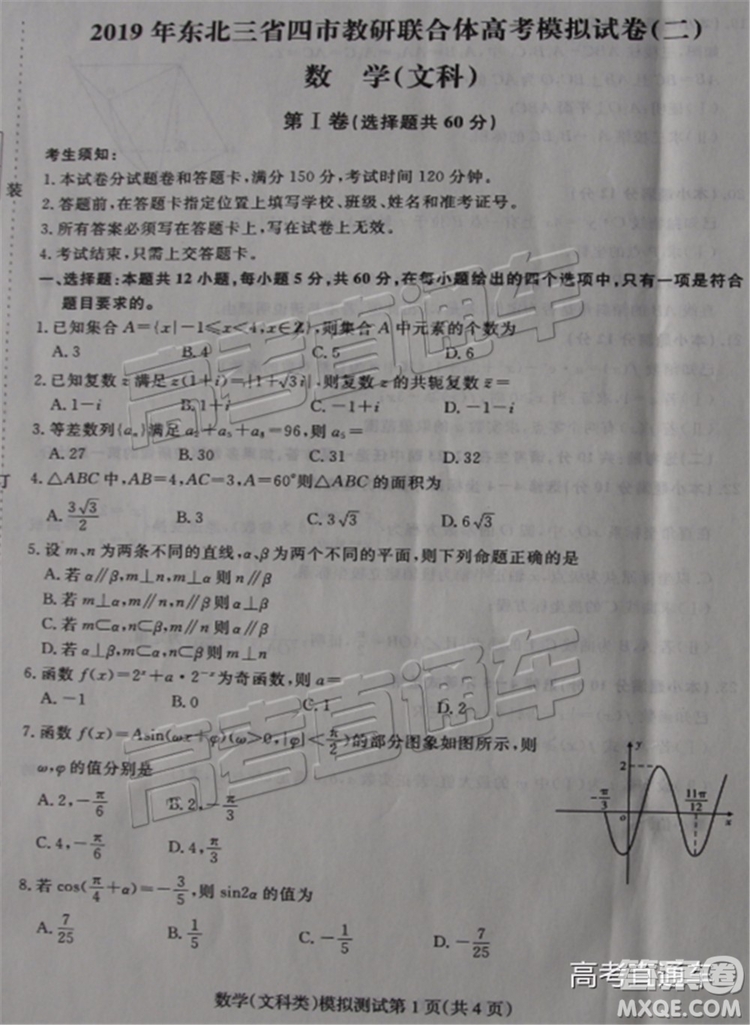 2019 年东北三省四市教研联合体高考模拟试卷(二)
数 学(文科)
第 I 卷(选择题共 60 分)
考生须知:
1.本试卷分试题卷和答题卡,满分 150 分,考试时间 120 分钟。
2.答题前,在答题卡指定位置上填写学校、班级、姓名和准考证号。
3.所有答案必须写在答题卡上,写在试卷上无效。
4.考试结束,只需上交答题卡。
一、选择题:本题共 12 小题,每小题 5 分,共 60 分,在每小题给出的四个选项中,只有一项是符合
题目要求的。
1.已知集合 A={x|-1≤x<4,x∈Z},则集合 A 中元素的个数为
A.3 B.4 C.5 D.6
2.已知复数 z 满足 z(1+i)=|1+√3i|,则复数 z 的共轭复数 z̄=
A.1-i B.1+i C.-1+i D.-1-i
3.等差数列{aₙ}满足 a₂+a₅+a₈=96,则 a₅=
A.27 B.30 C.31 D.32
4.△ABC 中,AB=4,AC=3,A=60°则△ABC 的面积为
A.3√3/2 B.3 C.3√3 D.6√3
5.设 m、n 为两条不同的直线,α、β为两个不同的平面,则下列命题正确的是
A.若 α∥β,m⊥n,m⊥α 则 n∥β
B.若 α⊥β,m∥n,n∥β则 m⊥α
C.若 m⊂α,n⊂β,m∥n 则 α∥β
D.若 α⊥β,m⊂α,n⊂β则 m⊥n
6.函数 f(x)=2ˣ+a·2⁻ˣ为奇函数,则 a=
A.-1 B.0 C.1 D.2
7.函数 f(x)=Asin(ωx+φ)(ω>0,|φ|<π/2)的部分图象如图所示,则
ω,φ 的值分别是
A.2,-π/6 B.2,-π/3
C.4,-π/6 D.4,π/3
y
2
-π/3
o
11π/12
x
8.若 cos(π/4+α)=-3/5,则 sin2α 的值为
A.7/25 B.1/5 C.-1/5 D.-7/25
数学(文科类)模拟测试第 1 页(共 4 页)
装
订
高考直通车
高考直通车
高考直通车
答案卷
MXQE.COM